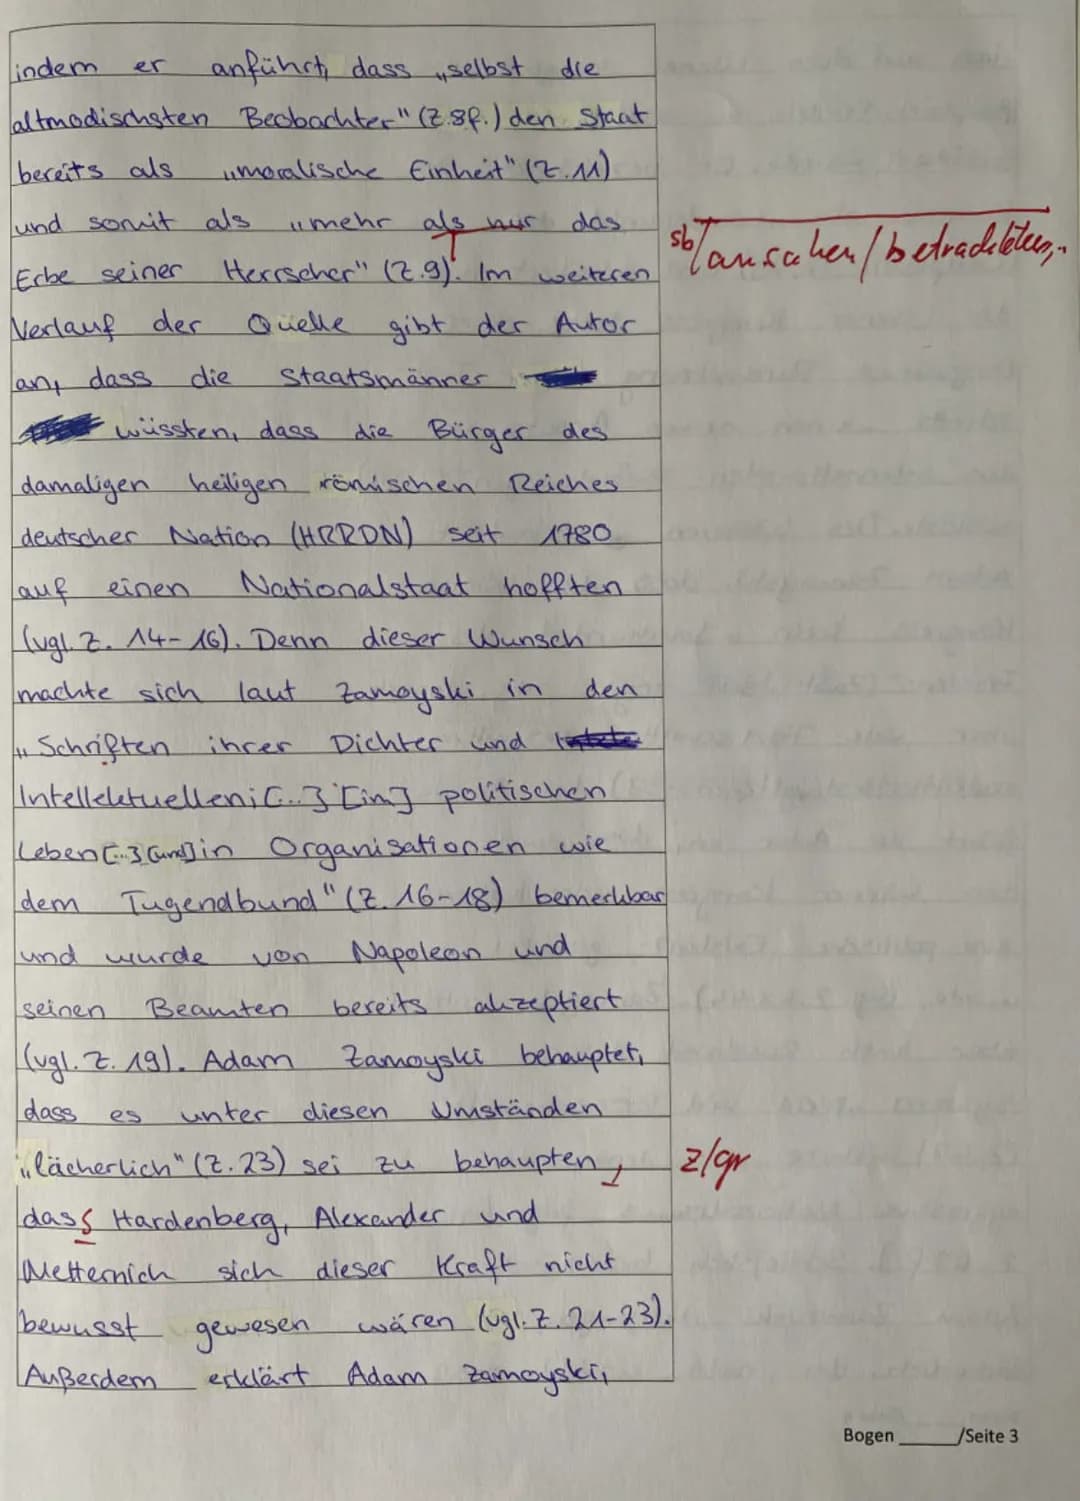 indem er anführt, dass „selbst die
altmodischsten Beobachter" (Z.8f.) den Staat
bereits als „moralische Einheit" (Z.11)
und somit als „mehr als nur das
sb/ ansahen/betrachteten,
Erbe seiner Herrscher" (Z.9). Im weiteren
Verlauf der Quelle gibt der Autor
an, dass die Staatsmänner
wüssten, dass die Bürger des
damaligen heiligen römischen Reiches
deutscher Nation (HRRDN) seit 1780
auf einen Nationalstaat hofften
(vgl. Z. 14-16). Denn dieser Wunsch
machte sich laut Zamoyski in den
„Schriften ihrer Dichter und
Intellektuellen; [...] [im] politischen
Leben [...] [und] in Organisationen wie
dem Tugendbund" (Z. 16-18) bemerkbar
und wurde von Napoleon und
seinen Beamten bereits akzeptiert
(vgl. Z. 19). Adam Zamoyski behauptet,
dass es unter diesen Umständen
„lächerlich" (Z.23) sei zu behaupten, z/gr
dass Hardenberg, Alexander und
Metternich sich dieser Kraft nicht
bewusst gewesen wären (vgl. Z. 21-23).
Außerdem erklärt Adam Zamoyski,
Bogen ______/Seite 3